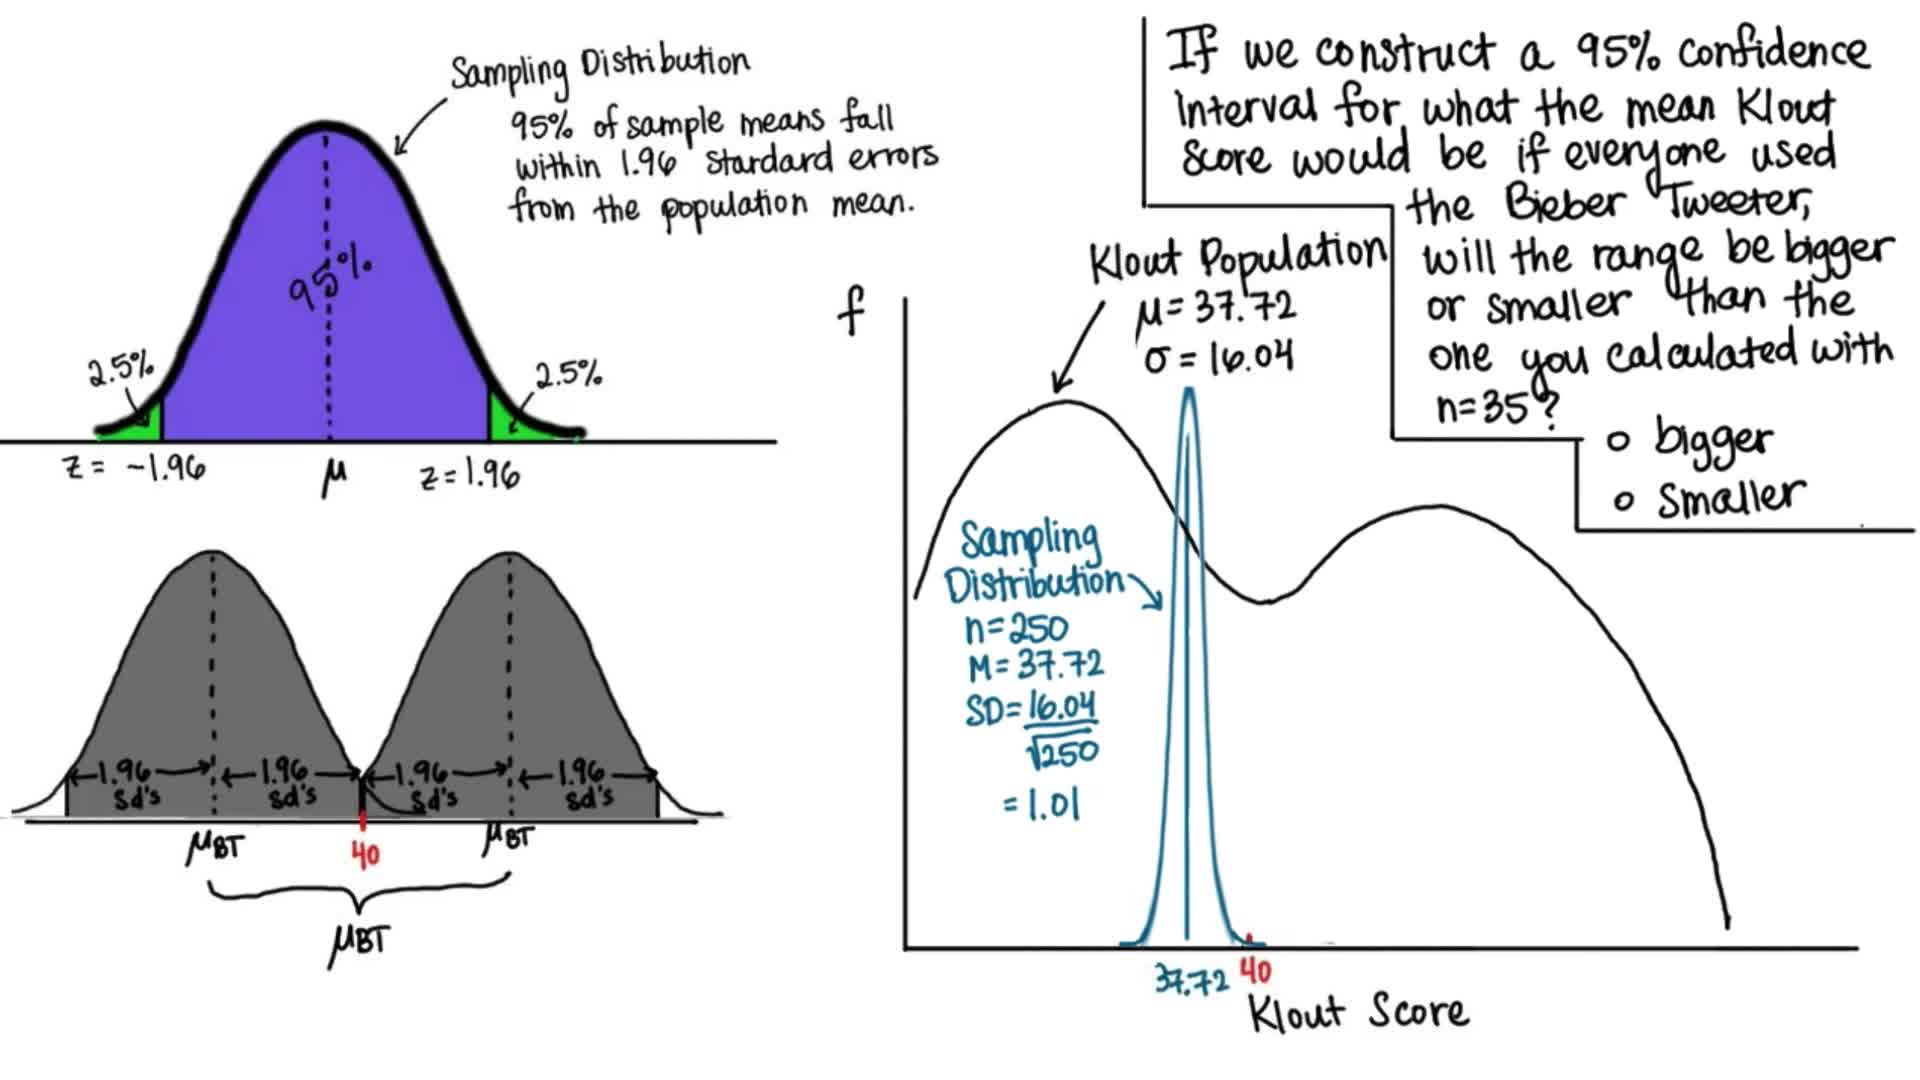 Sampling Distribution
95% of sample means fall
within 1.96 stardard errors
from the population mean.
95%
2.5%
2.5%
z = -1.96
μ
z = 1.96
1.96
sd's
1.96
sd's
1.96
sd's
1.96
sd's
μBT
40
μBT
μBT
If we construct a 95% confidence
interval for what the mean Klout
score would be if everyone used
the Bieber Tweeter,
will the range be bigger
or smaller than the
one you calculated with
n=35?
o bigger
o smaller
Klout Population
μ = 37.72
σ = 16.04
f
Sampling
Distribution
n=250
M = 37.72
SD = 16.04
√250
= 1.01
37.72
40
Klout Score